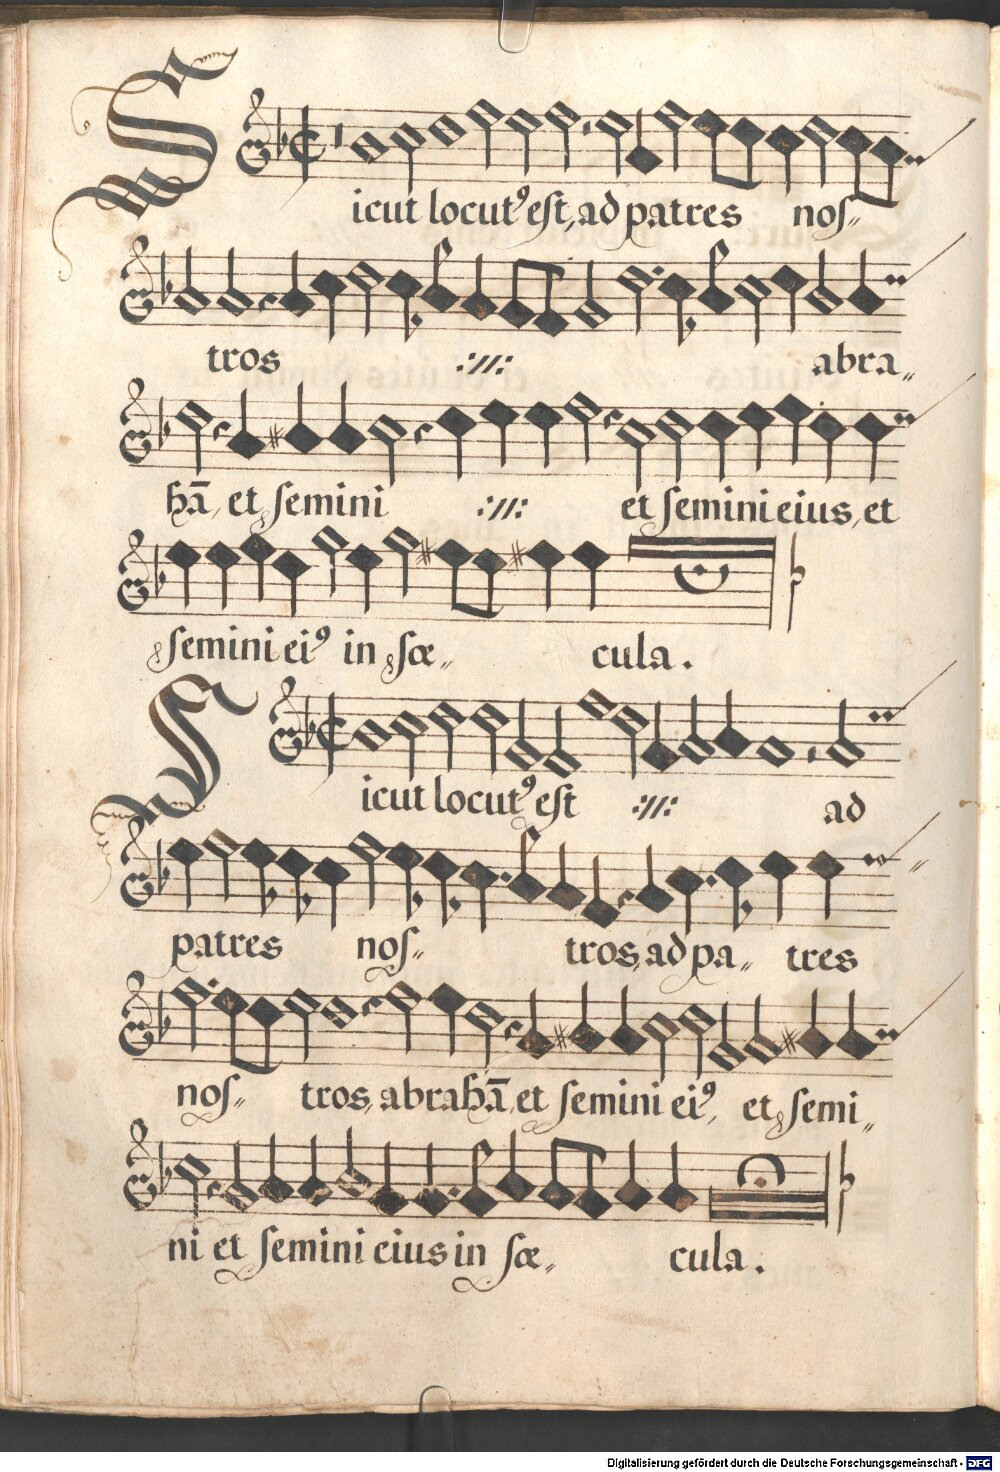 Sicut locutꝰ est, ad patres nos-
tros :||: abra„
hā, et semini :||: et semini eius, et
semini eiꝰ in sæ„ cula.
Sicut locutꝰ est :||: ad
patres nos- tros, ad pa„ tres
nos- tros, abrahā, et semini eiꝰ, et semi„
ni et semini eius in sæ„ cula.
Digitalisierung gefördert durch die Deutsche Forschungsgemeinschaft - DFG